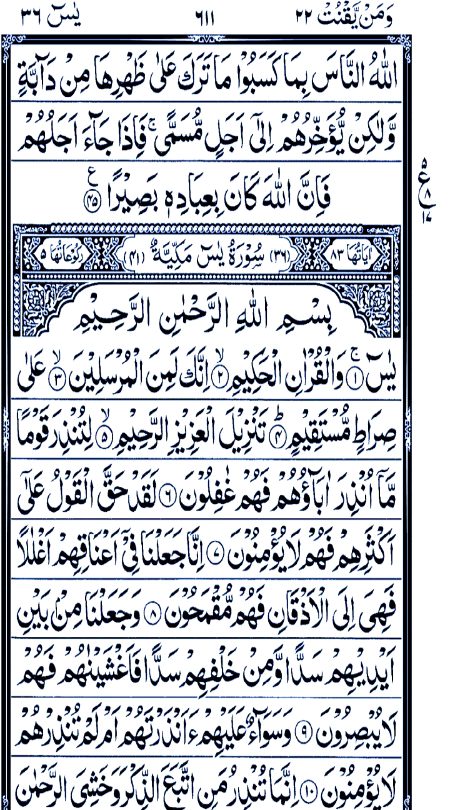 وَمَنْ يَّقْنُتْ ٢٢ ٦١١ يٰسٓ ٣٦
اللّٰهُ النَّاسَ بِمَا كَسَبُوْا مَا تَرَكَ عَلٰى ظَهْرِهَا مِنْ دَآبَّةٍ
وَّلٰكِنْ يُّؤَخِّرُهُمْ اِلٰٓى اَجَلٍ مُّسَمًّى ۚ فَاِذَا جَآءَ اَجَلُهُمْ
فَاِنَّ اللّٰهَ كَانَ بِعِبَادِهٖ بَصِيْرًا ﴿٤٥﴾ ع
٥ ع ٨ ١٧
اٰيَاتُهَا ٨٣ (٣٦) سُوْرَةُ يٰسٓ مَكِّيَّةٌ (٤١) رُكُوْعَاتُهَا ٥
بِسْمِ اللّٰهِ الرَّحْمٰنِ الرَّحِيْمِ
يٰسٓ ﴿١﴾ۚ وَالْقُرْاٰنِ الْحَكِيْمِ ﴿٢﴾ۙ اِنَّكَ لَمِنَ الْمُرْسَلِيْنَ ﴿٣﴾ۙ عَلٰى
صِرَاطٍ مُّسْتَقِيْمٍ ﴿٤﴾ؕ تَنْزِيْلَ الْعَزِيْزِ الرَّحِيْمِ ﴿٥﴾ۙ لِتُنْذِرَ قَوْمًا
مَّاۤ اُنْذِرَ اٰبَآؤُهُمْ فَهُمْ غٰفِلُوْنَ ﴿٦﴾ لَقَدْ حَقَّ الْقَوْلُ عَلٰٓى
اَكْثَرِهِمْ فَهُمْ لَا يُؤْمِنُوْنَ ﴿٧﴾ اِنَّا جَعَلْنَا فِيْٓ اَعْنَاقِهِمْ اَغْلٰلًا
فَهِيَ اِلَى الْاَذْقَانِ فَهُمْ مُّقْمَحُوْنَ ﴿٨﴾ وَجَعَلْنَا مِنْۢ بَيْنِ
اَيْدِيْهِمْ سَدًّا وَّمِنْ خَلْفِهِمْ سَدًّا فَاَغْشَيْنٰهُمْ فَهُمْ
لَا يُبْصِرُوْنَ ﴿٩﴾ وَسَوَآءٌ عَلَيْهِمْ ءَاَنْذَرْتَهُمْ اَمْ لَمْ تُنْذِرْهُمْ
لَا يُؤْمِنُوْنَ ﴿١٠﴾ اِنَّمَا تُنْذِرُ مَنِ اتَّبَعَ الذِّكْرَ وَخَشِيَ الرَّحْمٰنَ